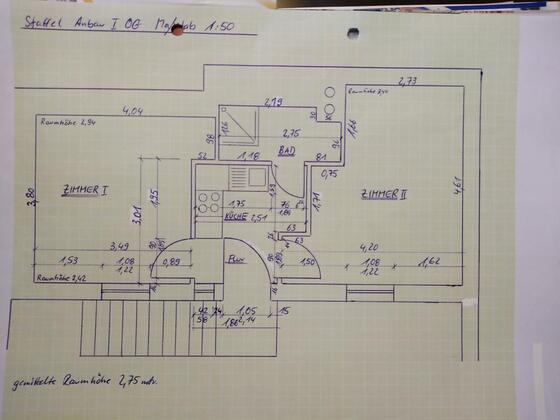 Staffel Anbau I OG Maßstab 1:50
2,73
Raumhöhe 2,40
4,04
2,19
Raumhöhe 2,94
30
1,66
98
1,26
2,75
96
BAD
52
1,18
81
0,75
3,80
ZIMMER I
3,01
1,95
1,59
1,71
ZIMMER II
4,61
1,75
76
KÜCHE
2,51
63
63
3,49
4,20
Flur
1,53
1,08
0,89
1,50
1,08
1,62
1,22
1,22
Raumhöhe 2,42
42
24
1,05
15
58
1,86
2,14
gemittelte Raumhöhe 2,75 mtr.